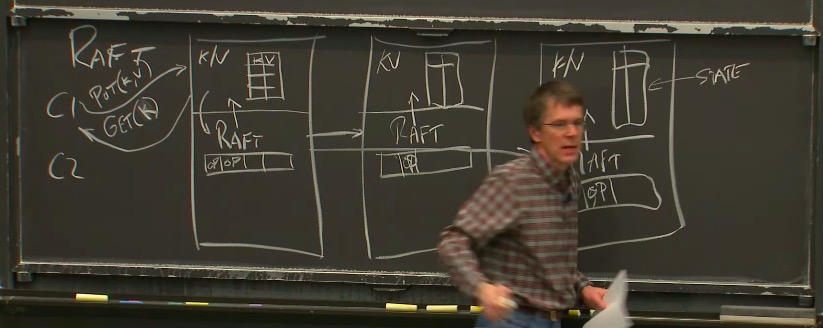 RAFT
C1
PUT(K,V)
GET(K)
C2
K/V
KV
RAFT
OP OP
KV
RAFT
OP
K/V
AFT
OP
STATE